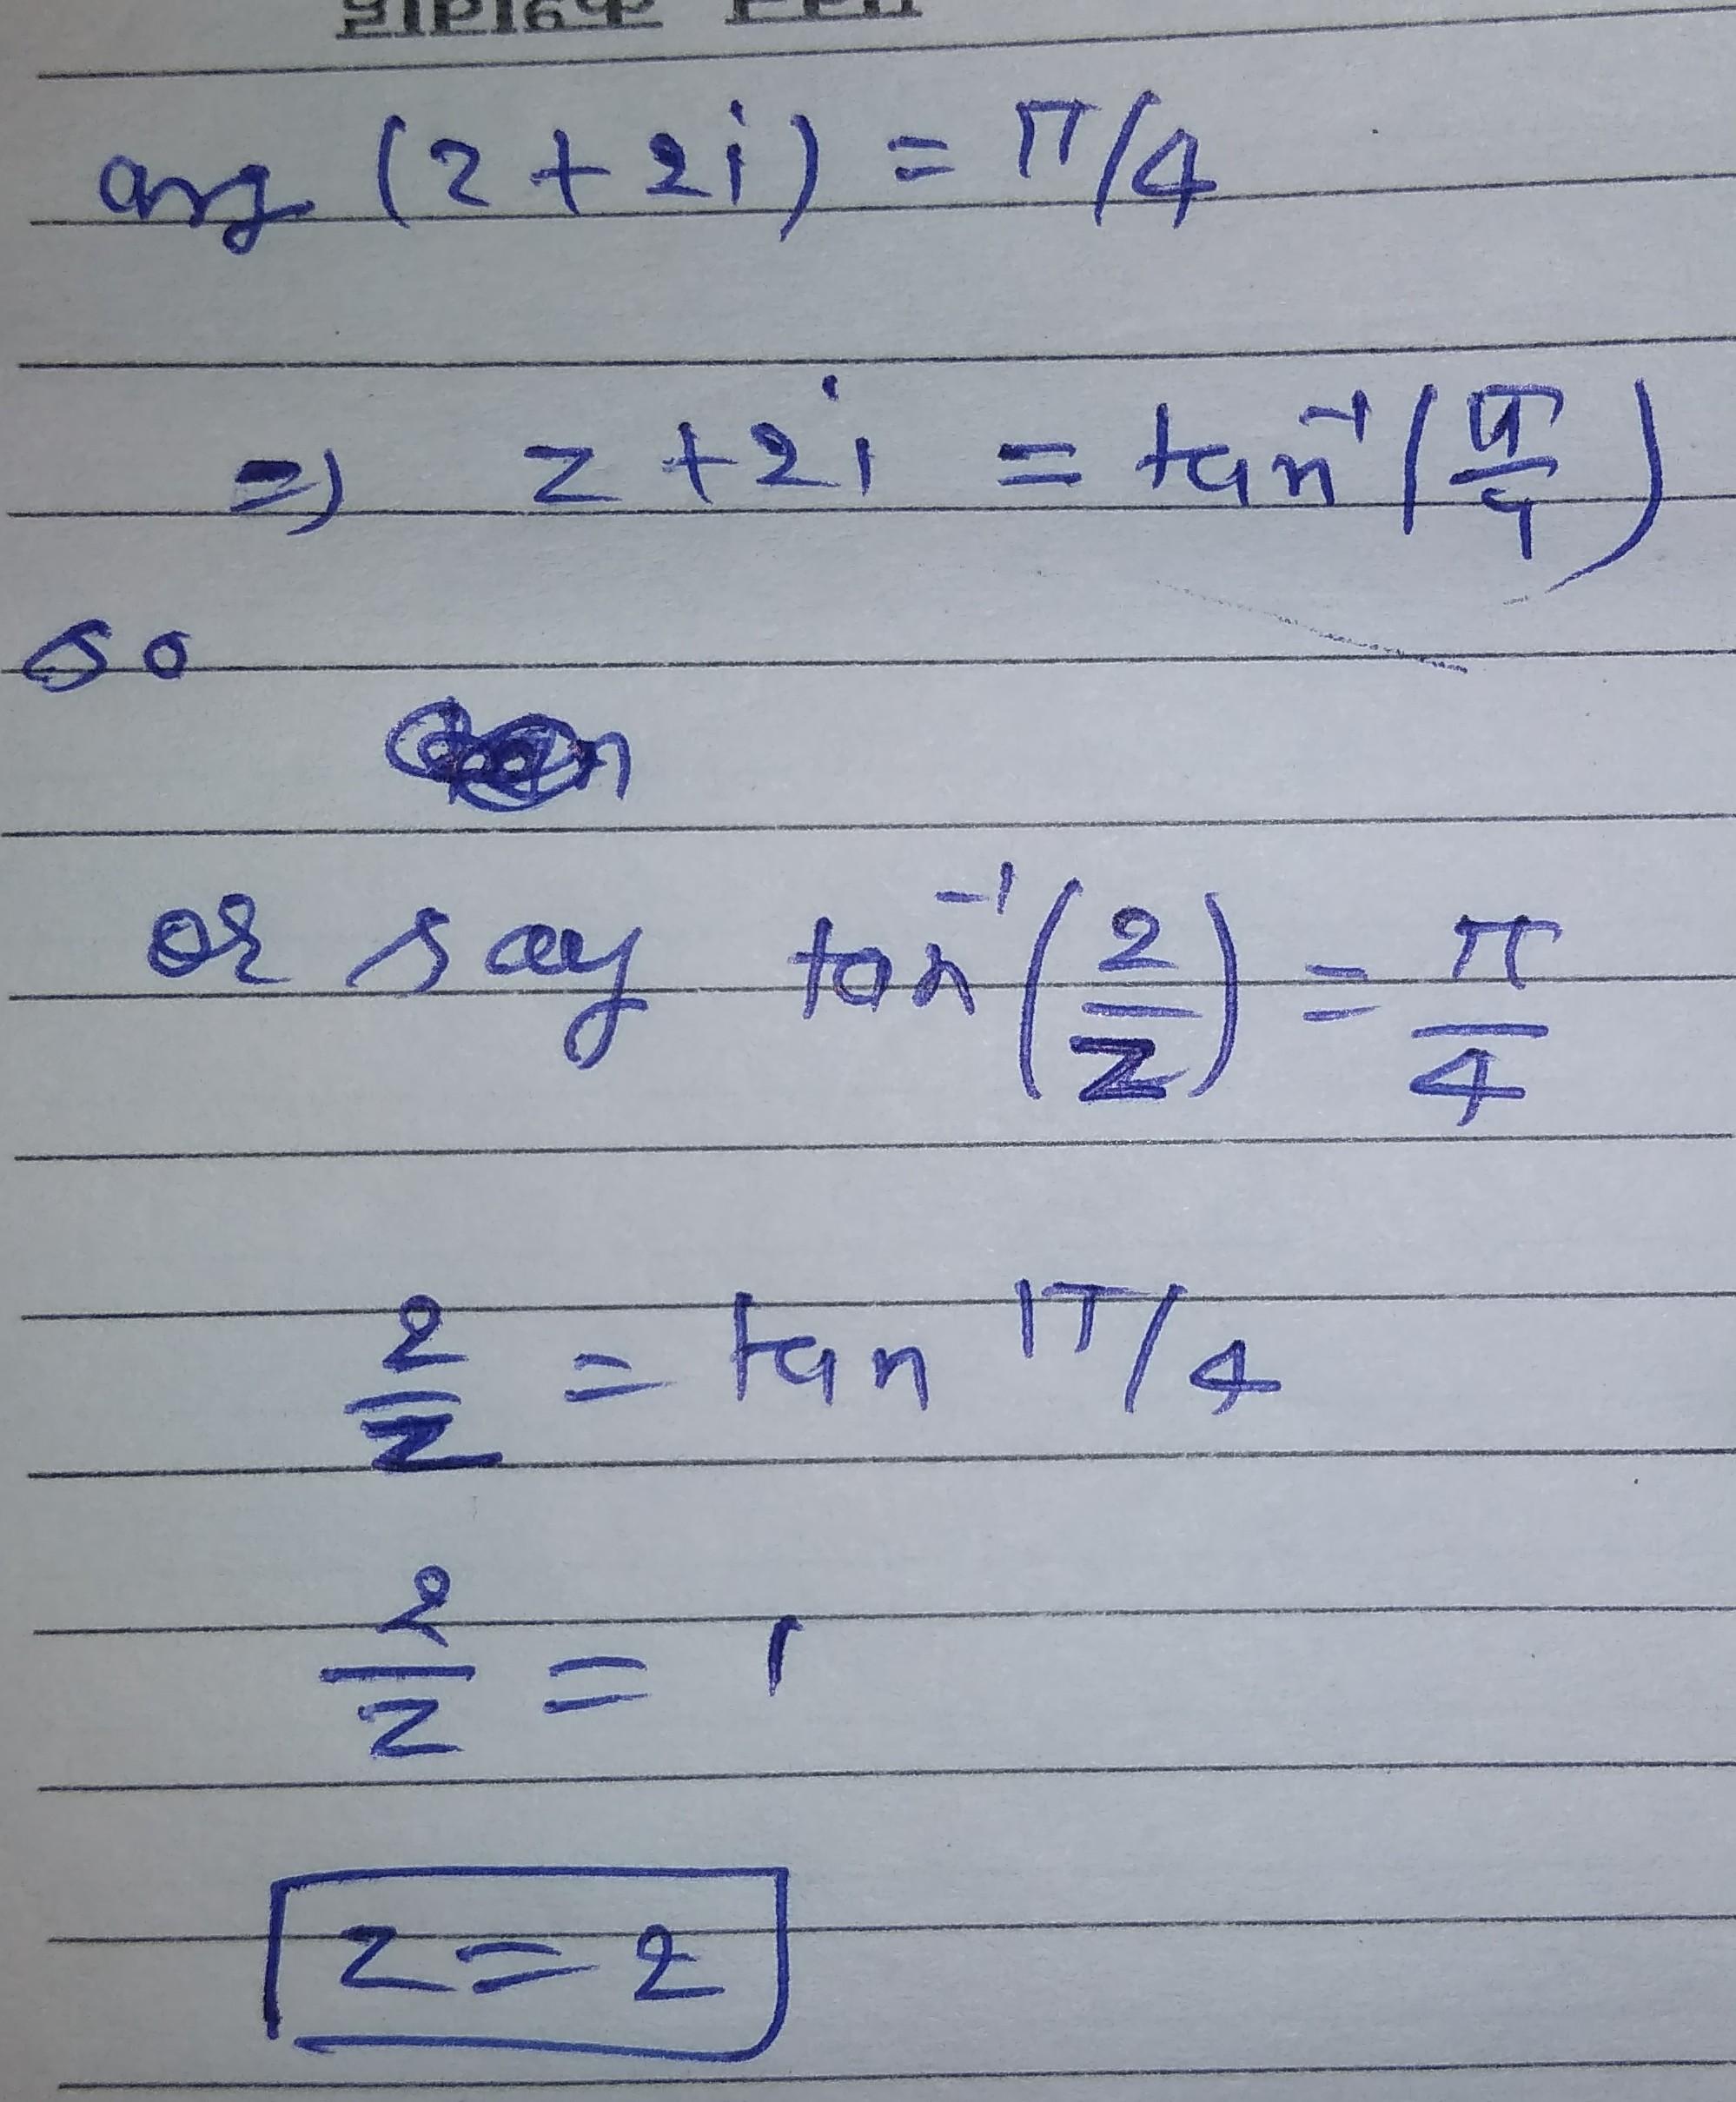 arg (z + 2i) = π/4
=> z + 2i = tan⁻¹ (π/4)
so
or say tan⁻¹ (2/z) = π/4
2/z = tan π/4
2/z = 1
z = 2